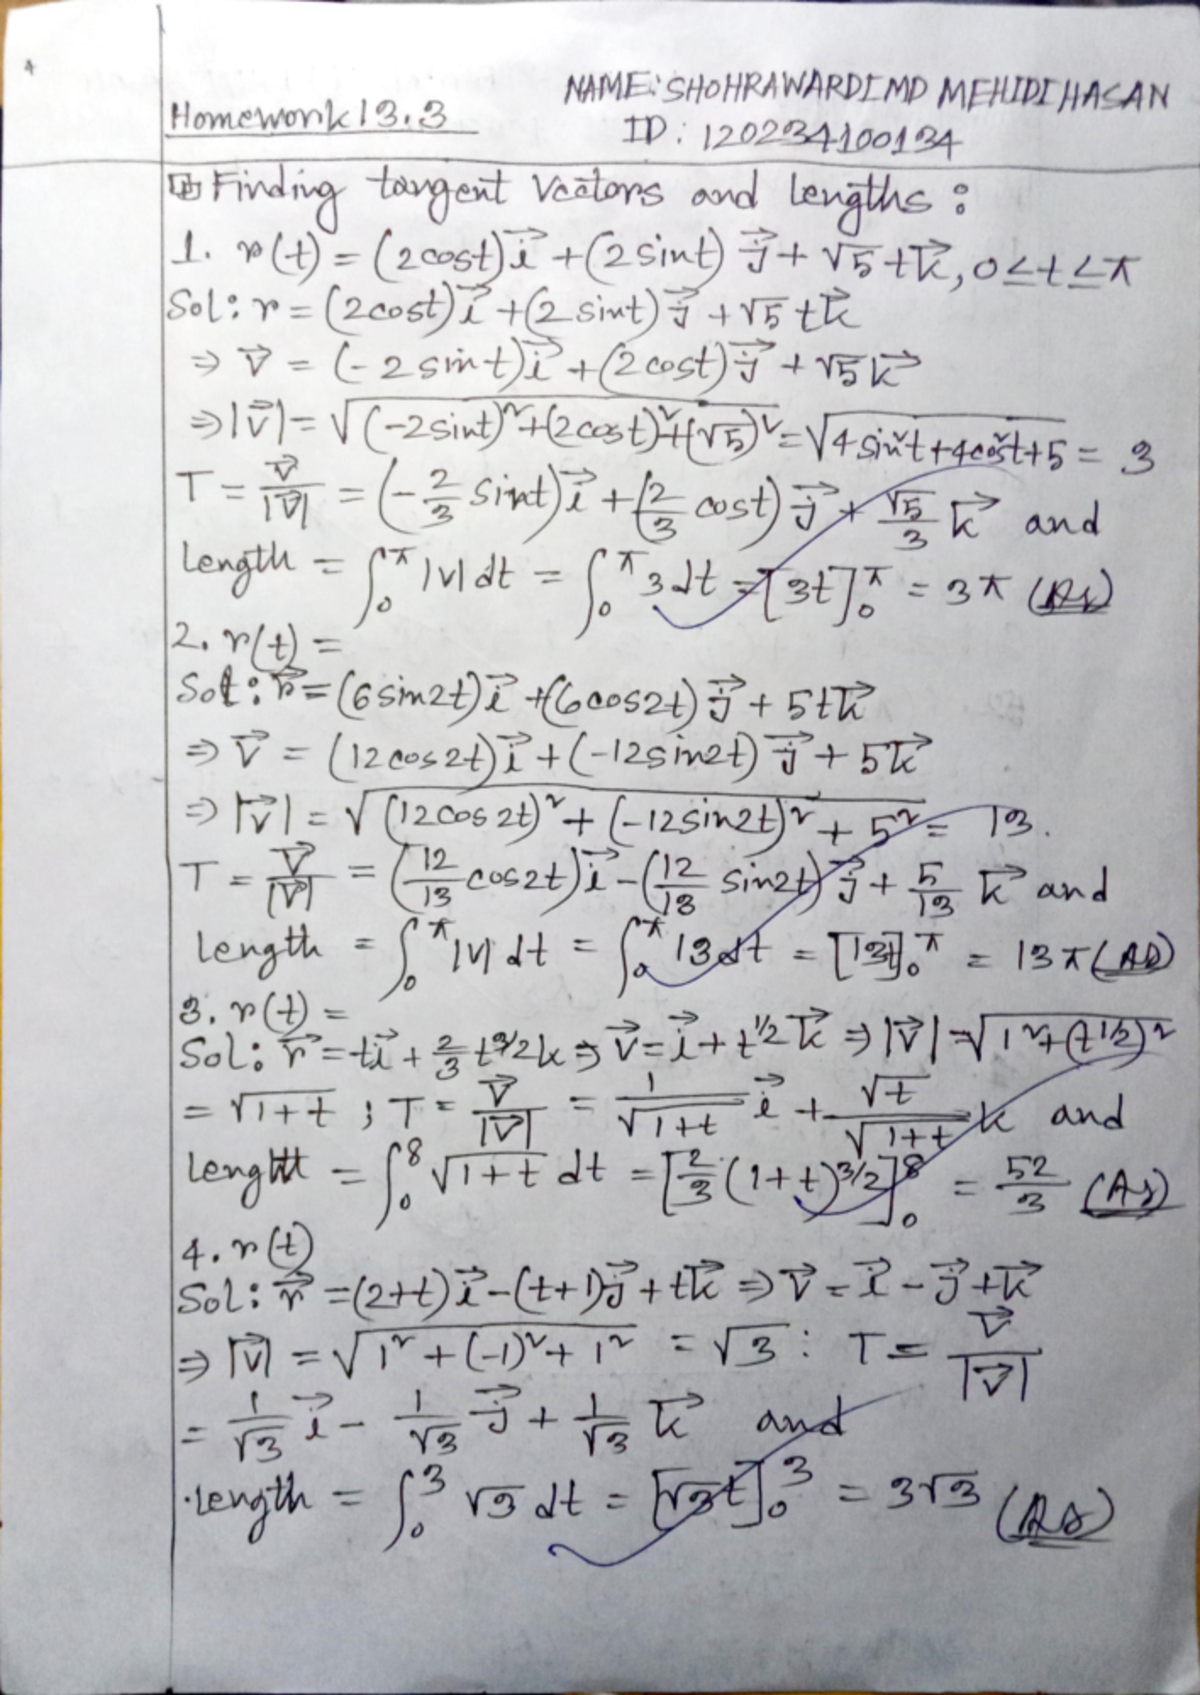 Homework 13.3
NAME: SHOHRAWARDI MD MEHIDI HASAN
ID: 120234100134
Finding tangent vectors and lengths:
1. r(t) = (2cost)i⃗ + (2sint)j⃗ + √5 tk⃗, 0≤t≤π
Sol: r = (2cost)i⃗ + (2sint)j⃗ + √5 tk⃗
⇒ v⃗ = (-2sint)i⃗ + (2cost)j⃗ + √5k⃗
⇒ |v⃗| = √((-2sint)²+(2cost)²+(√5)²) = √(4sin²t+4cos²t+5) = 3
T = v⃗/|v⃗| = (-2/3 sint)i⃗ + (2/3 cost)j⃗ + √5/3 k⃗ and
Length = ∫₀^π |v| dt = ∫₀^π 3dt = [3t]₀^π = 3π (As)
2. r(t) =
Sol: r⃗ = (6sin2t)i⃗ + (6cos2t)j⃗ + 5tk⃗
⇒ v⃗ = (12cos2t)i⃗ + (-12sin2t)j⃗ + 5k⃗
⇒ |v⃗| = √((12cos2t)² + (-12sin2t)² + 5²) = 13.
T = v⃗/|v⃗| = (12/13 cos2t)i⃗ - (12/13 sin2t)j⃗ + 5/13 k⃗ and
Length = ∫₀^π |v| dt = ∫₀^π 13dt = [13t]₀^π = 13π (As)
3. r(t) =
Sol: r⃗ = ti⃗ + 2/3 t^3/2 k ⇒ v⃗ = i⃗ + t^1/2 k⃗ ⇒ |v⃗| = √(1²+(t^1/2)²)
= √(1+t) ; T = v⃗/|v⃗| = 1/√(1+t) i⃗ + √t/√(1+t) k and
Lenght = ∫₀^8 √(1+t) dt = [2/3 (1+t)^3/2]₀^8 = 52/3 (As)
4. r(t)
Sol: r⃗ = (2+t)i⃗ - (t+1)j⃗ + tk⃗ ⇒ v⃗ = i⃗ - j⃗ + k⃗
⇒ |v⃗| = √(1² + (-1)² + 1²) = √3 : T = v⃗/|v⃗|
= 1/√3 i⃗ - 1/√3 j⃗ + 1/√3 k⃗ and
.Length = ∫₀^3 √3 dt = [√3t]₀^3 = 3√3 (As)